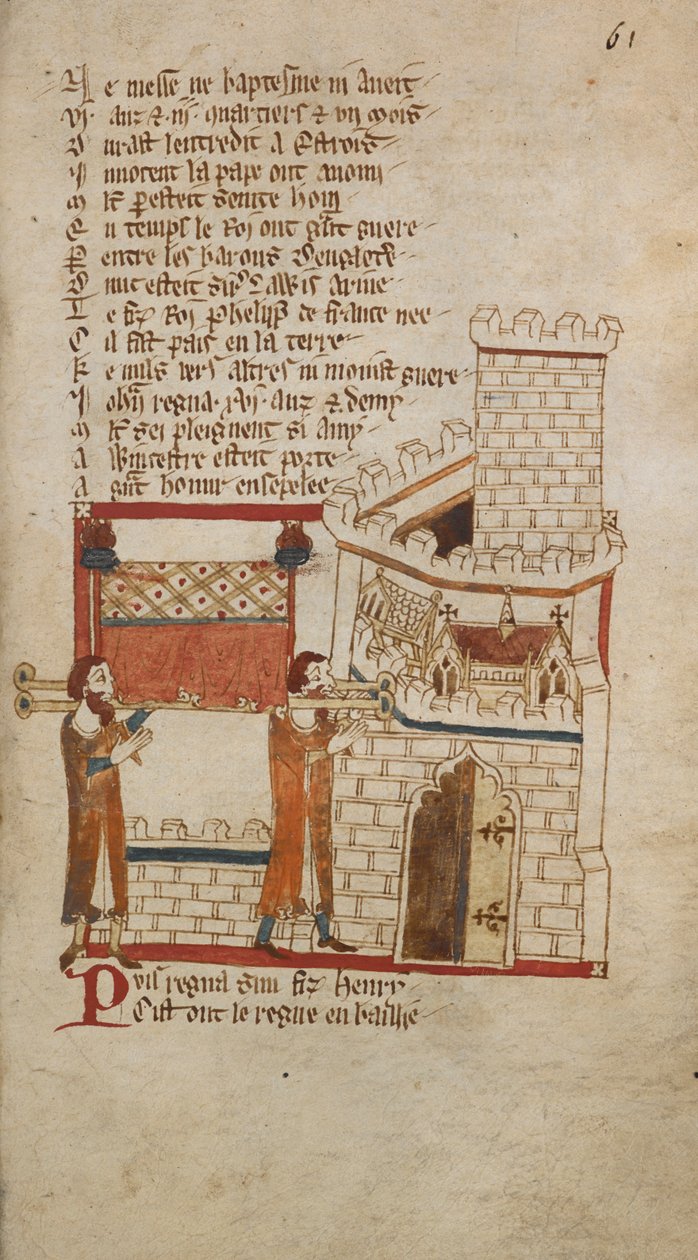 61
N e messe ne baptesme ni aveit
vi · anz & · iij · quartiers & vn mois
D urast lentredit a Estrois
I nnocent la pape out a noun
M lt p esteit seinte hom
E n temps le Roi out g̃nt guere
P entre les barons dengleť
D unt esteit Lawis
L e fiz Roi Phelip de france nee
C il fist pais en la terre
K e nuls vers altres ni movist guere
I ohn regna · xvj · anz & demy
M lt sei pleignent si amy
A Wincestre esteit porte
A g̃nt honur ensepelee
P uis regna sun fiz henry
C ist out le regne en baillie